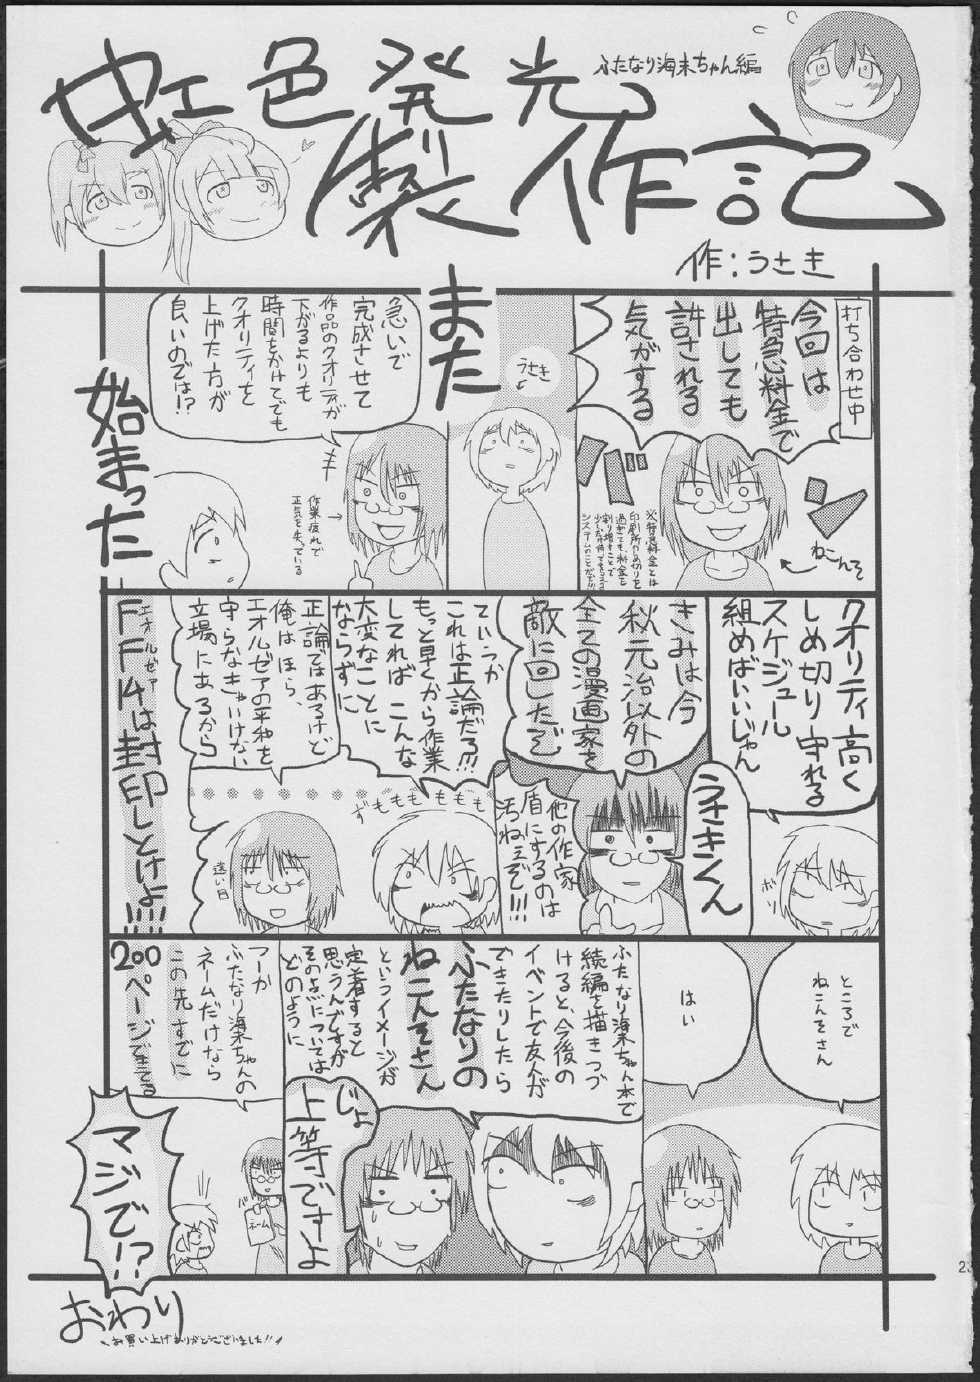 ふたなり海未ちゃん編
虹色発光
製作記
作：うさき
打ち合わせ中
今回は
特急料金で
出しても
許される
気がする
バン
ねこんそ
※特急料金とは
印刷所が〆切りを
過ぎても、料金を
割り増すことで
システムのことだぞ!!
うさき
また
急いで
完成させて
作品のクオリティが
下がるよりも
時間をかけてでも
クオリティを
上げた方が
良いのでは!?
作業疲れで
正気を失っている
始まった
クオリティ高く
しめ切り守れる
スケジュール
組めばいいじゃん
ボソ
うさきくん
きみは今
秋元治以外の
全ての漫画家を
敵に回したぞ
他の作家
盾にするのは
汚ねえぞ!!!
ていうか
これは正論だろ!!!
もっと早くから作業
してれば こんな
大変なことに
ならずに
ずももももももも
正論ではあるけど
俺はほら、
エオルゼアの平和を
守らなきゃいけない
立場にあるから
遠い目
エオルゼア
FF14は封印しとけよ!!!!
ところで
ねこんそさん
はい
ふたなり海未ちゃん本で
続編を描きつづ
けると、今後の
イベントで友人が
できたりしたら
ふたなりの
ねこんそさん
というイメージが
定着すると
思うんですが
そのよ
については
どのように
じょ
上等ですよ
つーか
ふたなり海未ちゃんの
ネームだけなら
この先すでに
200ページできてる
ネーム
マジで!?
おわり
お買い上げありがとうございました!!
23